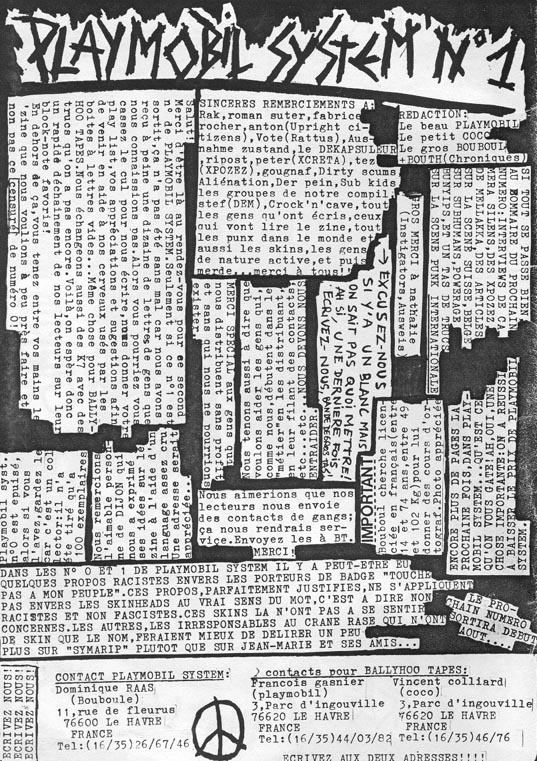 PLAYMOBIL SYSTEM N°1
SINCERES REMERCIEMENTS A:
Rak,roman suter,fabrice
rocher,anton(Upright ci-
tizens),Vote(Rattus),Aus-
nahme zustand,LE DEKAPSULEUR
,ripost,peter(XCRETA),tez
(XPOZEZ),gougnaf,Dirty scums
Aliénation,Der pein,Sub kids
les groupes de notre compil,
stef(DEM),Crock'n'cave,tout
les gens qu'ont écris,ceux
qui vont lire le zine,tout
les punx dans le monde et
aussi les skins,les gens
de nature active,et puis
merde...merci à tous!!
REDACTION:
Le beau PLAYMOBIL
Le petit COCO
Le gros BOUBOUL
+BOUTH(Chroniques)
SI TOUT SE PASSE BIEN
AU SOMMAIRE DU PROCHAIN
NUMERO:INTERVIEWS DE CA
DE MELLAKKA,DES ARTICLES
SUR LA SCENE SUISSE,BELGE
SUR SUBHUMANS,POWERAGE
RUNTIFS,ET UN TAS DE TRUCS
SUR LA SCENE PUNK INTERNATIONALE
GROS MERCI à nathalie
(Instigators,Ausweis
→ EXCUSEZ-NOUS
SI Y'A UN BLANC MAIS
ON SAIT PAS QUOI METTRE!
AH SI, UNE DERNIERE FOIS,
ECRIVEZ-NOUS, BANDE DE GROS
Salut!
Merci d'être au rendez-vous pour ce n°1
de PLAYMOBIL SYSTEM.Seulement,le n°0 est
sorti,on l'a pas été sans mal car nous avons
reçu à peine une dizaine de lettres de gens que
nous connaissions pas.Alors vous pourriez vous
cassez le cul pour nous écrire,nous donnez vos
plaintes,vos appréciations,des suggestions afin
de venir en aide à nos cerveaux usés par les
boites à lettres vides...Même chose pour BALLY-
HOO TAPES.Nous échangeons aussi des K7 avec des
trucs que nous n'avons pas encore.Voilà,on espère donc
un rapide déchainement de tous les lecteurs sur leur
block-note favoris!
En dehors de ça,vous tenez entre vos mains le
'zine que nous voulions à peu près faire et
non pas ce (censure) de numero 0!!
MERCI SPECIAL aux gens qui
nous distribuent sans profit
et sans qui nous ne pourrions
exister.
Nous tenons aussi à dire que
voulons aider les gens qui,
comme nous,débutent dans le
"métier" en leur filant des contacts,
etc...etc..NOUS DEVONS NOUS
ENTRAIDER!
IMPORTANT
Bouboul cherche licen
ciées en français(entre
14 et 74 ans et entre 49
et 102 kg)pour lui
donner des cours d'or
tograf.Photo appréciée
ENCORE PLUS DE PAGES LA
PROCHAINE FOIS,SANS PLAY-
QU'ON VOUS GATE,AUTRE
CHOSE IMPORANTE:ON A REUSSI
A BAISSER LE PRIX DE PLAYMOBIL
SYSTEM
Playmobil syst.
n°0 est épuisé
alors si vous
l'avez,gardez le
car c'est un col
lectort:il n'a
été tiré qu'a
100 exemplaires
Nous remercions
l'aimable person-
ne de DIJON qui
nous a exprimé
ses idées sur le
zine à l'aide d'un
language assez cru
Une adresse serait
appréciée..
Nous aimerions que nos
lecteurs nous envoie
des contacts de gangs;
ça nous rendrais ser-
vice.Envoyez les à BT.
MERCI!
DANS LES N° 0 ET 1 DE PLAYMOBIL SYSTEM IL Y A PEUT-ETRE EU
QUELQUES PROPOS RACISTES ENVERS LES PORTEURS DE BADGE "TOUCHE
PAS A MON PEUPLE".CES PROPOS,PARFAITEMENT JUSTIFIES,NE S'APPLIQUENT
PAS ENVERS LES SKINHEADS AU VRAI SENS DU MOT,C'EST A DIRE NON
RACISTES ET NON FASCISTES.CES SKINS LA N'ONT PAS A SE SENTIR
CONCERNES.LES AUTRES,LES IRRESPONSABLES AU CRANE RASE QUI N'ONT
DE SKIN QUE LE NOM,FERAIENT MIEUX DE DELIRER UN PEU
PLUS SUR "SYMARIP" PLUTOT QUE SUR JEAN-MARIE ET SES AMIS...
LE PRO-
CHAIN NUMERO
SORTIRA DEBUT
AOUT....
ECRIVEZ NOUS!
ECRIVEZ NOUS!
ECRIVEZ NOUS!
CONTACT PLAYMOBIL SYSTEM:
Dominique RAAS
(Bouboule)
11,rue de fleurus
76600 LE HAVRE
FRANCE
Tel:(16/35)26/67/46
> contacts pour BALLYHOO TAPES:
Francois gasnier
(playmobil)
3,Parc d'ingouville
76620 LE HAVRE
FRANCE
Tel:(16/35)44/03/82
Vincent colliard
(coco)
3,Parc d'ingouville
76620 LE HAVRE
FRANCE
Tel:(16/35)46/76
ECRIVEZ AUX DEUX ADRESSES!!!!